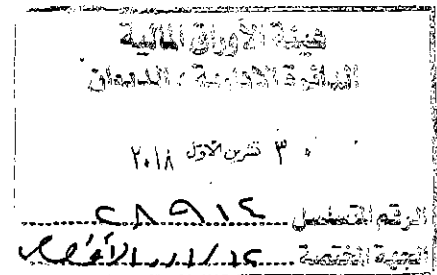 هيئة الأوراق المالية
الدائرة الإدارية / الديوان
٣٠ تشرين الأول ٢٠١٨
الرقم المتسلسل
الجهة المختصة